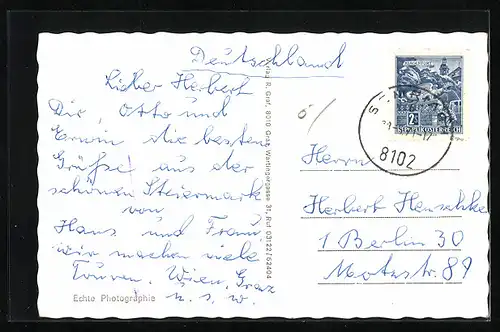 Deutschland
Lieber Herbert
Dir, Otto und
Erwin die besten
Grüße aus der
schönen Steiermark
von
Hans und Frau,
wir machen viele
Touren. Wien, Graz
u. s. w.
Echte Photographie
Verlag R. Graf, 8010 Graz, Wartingergasse 31, Ruf 03122/62404
KLAGENFURT
2S
REPUBLIK ÖSTERREICH
8102
Herrn
Herbert
1 Berlin 30
Motzstr. 89